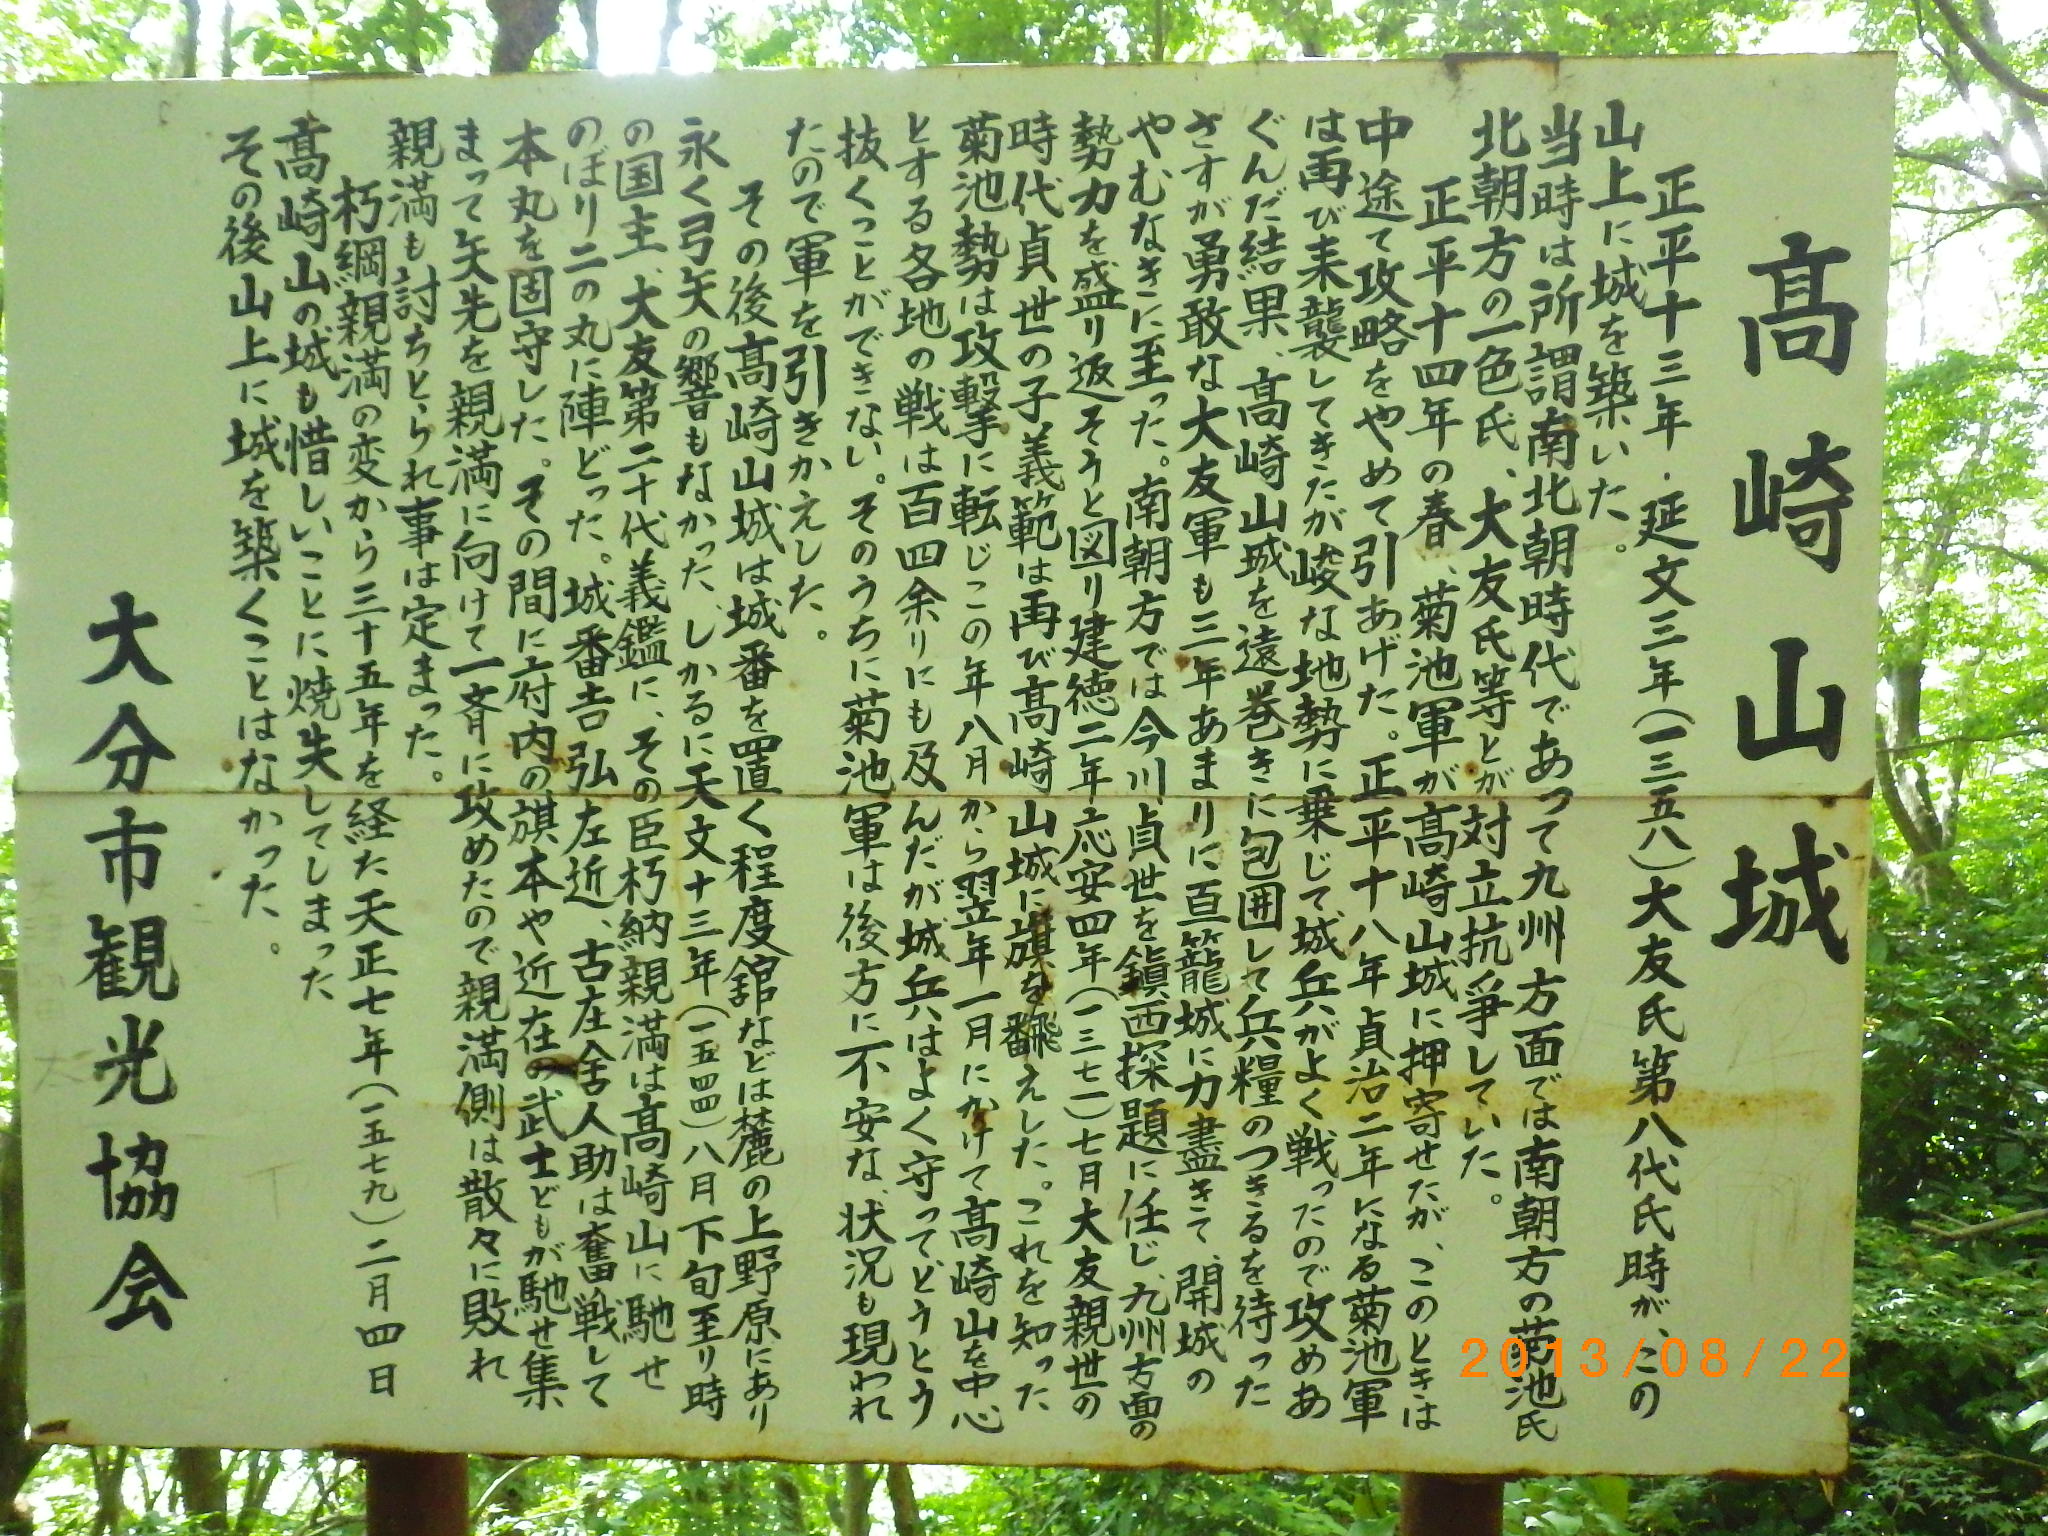 高崎山城
正平十三年・延文三年(一三五八)大友氏第八代氏時が、この
山上に城を築いた。
当時は所謂南北朝時代であって九州方面では南朝方の菊池氏
北朝方の一色氏、大友氏等とが対立抗争していた。
正平十四年の春、菊池軍が高崎山城に押寄せたが、このときは
中途て攻略をやめて引あげた。正平十八年貞治二年になる菊池軍
は再び来襲してきたが峻な地勢に乗じて城兵がよく戦ったので攻めあ
ぐんだ結果、高崎山城を遠巻きに包囲して兵糧のつきるを待った
さすが勇敢な大友軍も三年あまりに亘籠城に力盡きて、開城の
やむなきに至った。南朝方では今川貞世を鎭西探題に任じ、九州方面の
勢力を盛り返そうと図り建徳二年応安四年(一三七一)七月大友親世の
時代貞世の子義範は再び高崎山城に旗を飜えした。これを知った
菊池勢は攻撃に転じこの年八月から翌年一月にかけて高崎山を中心
とする各地の戦は百四余りにも及んだが城兵はよく守ってどうとう
抜くっとができない。そのうちに菊池軍は後方に不安な、状況も現われ
たので軍を引きかえした。
その後高崎山城は城番を置く程度舘などは麓の上野原にあり
永く弓矢の響もなかった、しかるに天文十三年(一五四四)八月下旬至り時
の国主、大友第二十代義鑑に、その臣朽納親満は高崎山に馳せ
のぼり二の丸に陣どった。城番吉弘左近、古庄舎人助は奮戦して
本丸を固守した。その間に府内の旗本や近在の武士どもが馳せ集
まって矢先を親満に向けて一斉に攻めたので親満側は散々に敗れ
親満も討ちとられ事は定まった。
朽綱親満の変から三十五年を経た天正七年(一五七九)二月四日
高崎山の城も惜しいことに焼失してしまった
その後山上に城を築くことはなかった。
大分市観光協会
2013/08/22